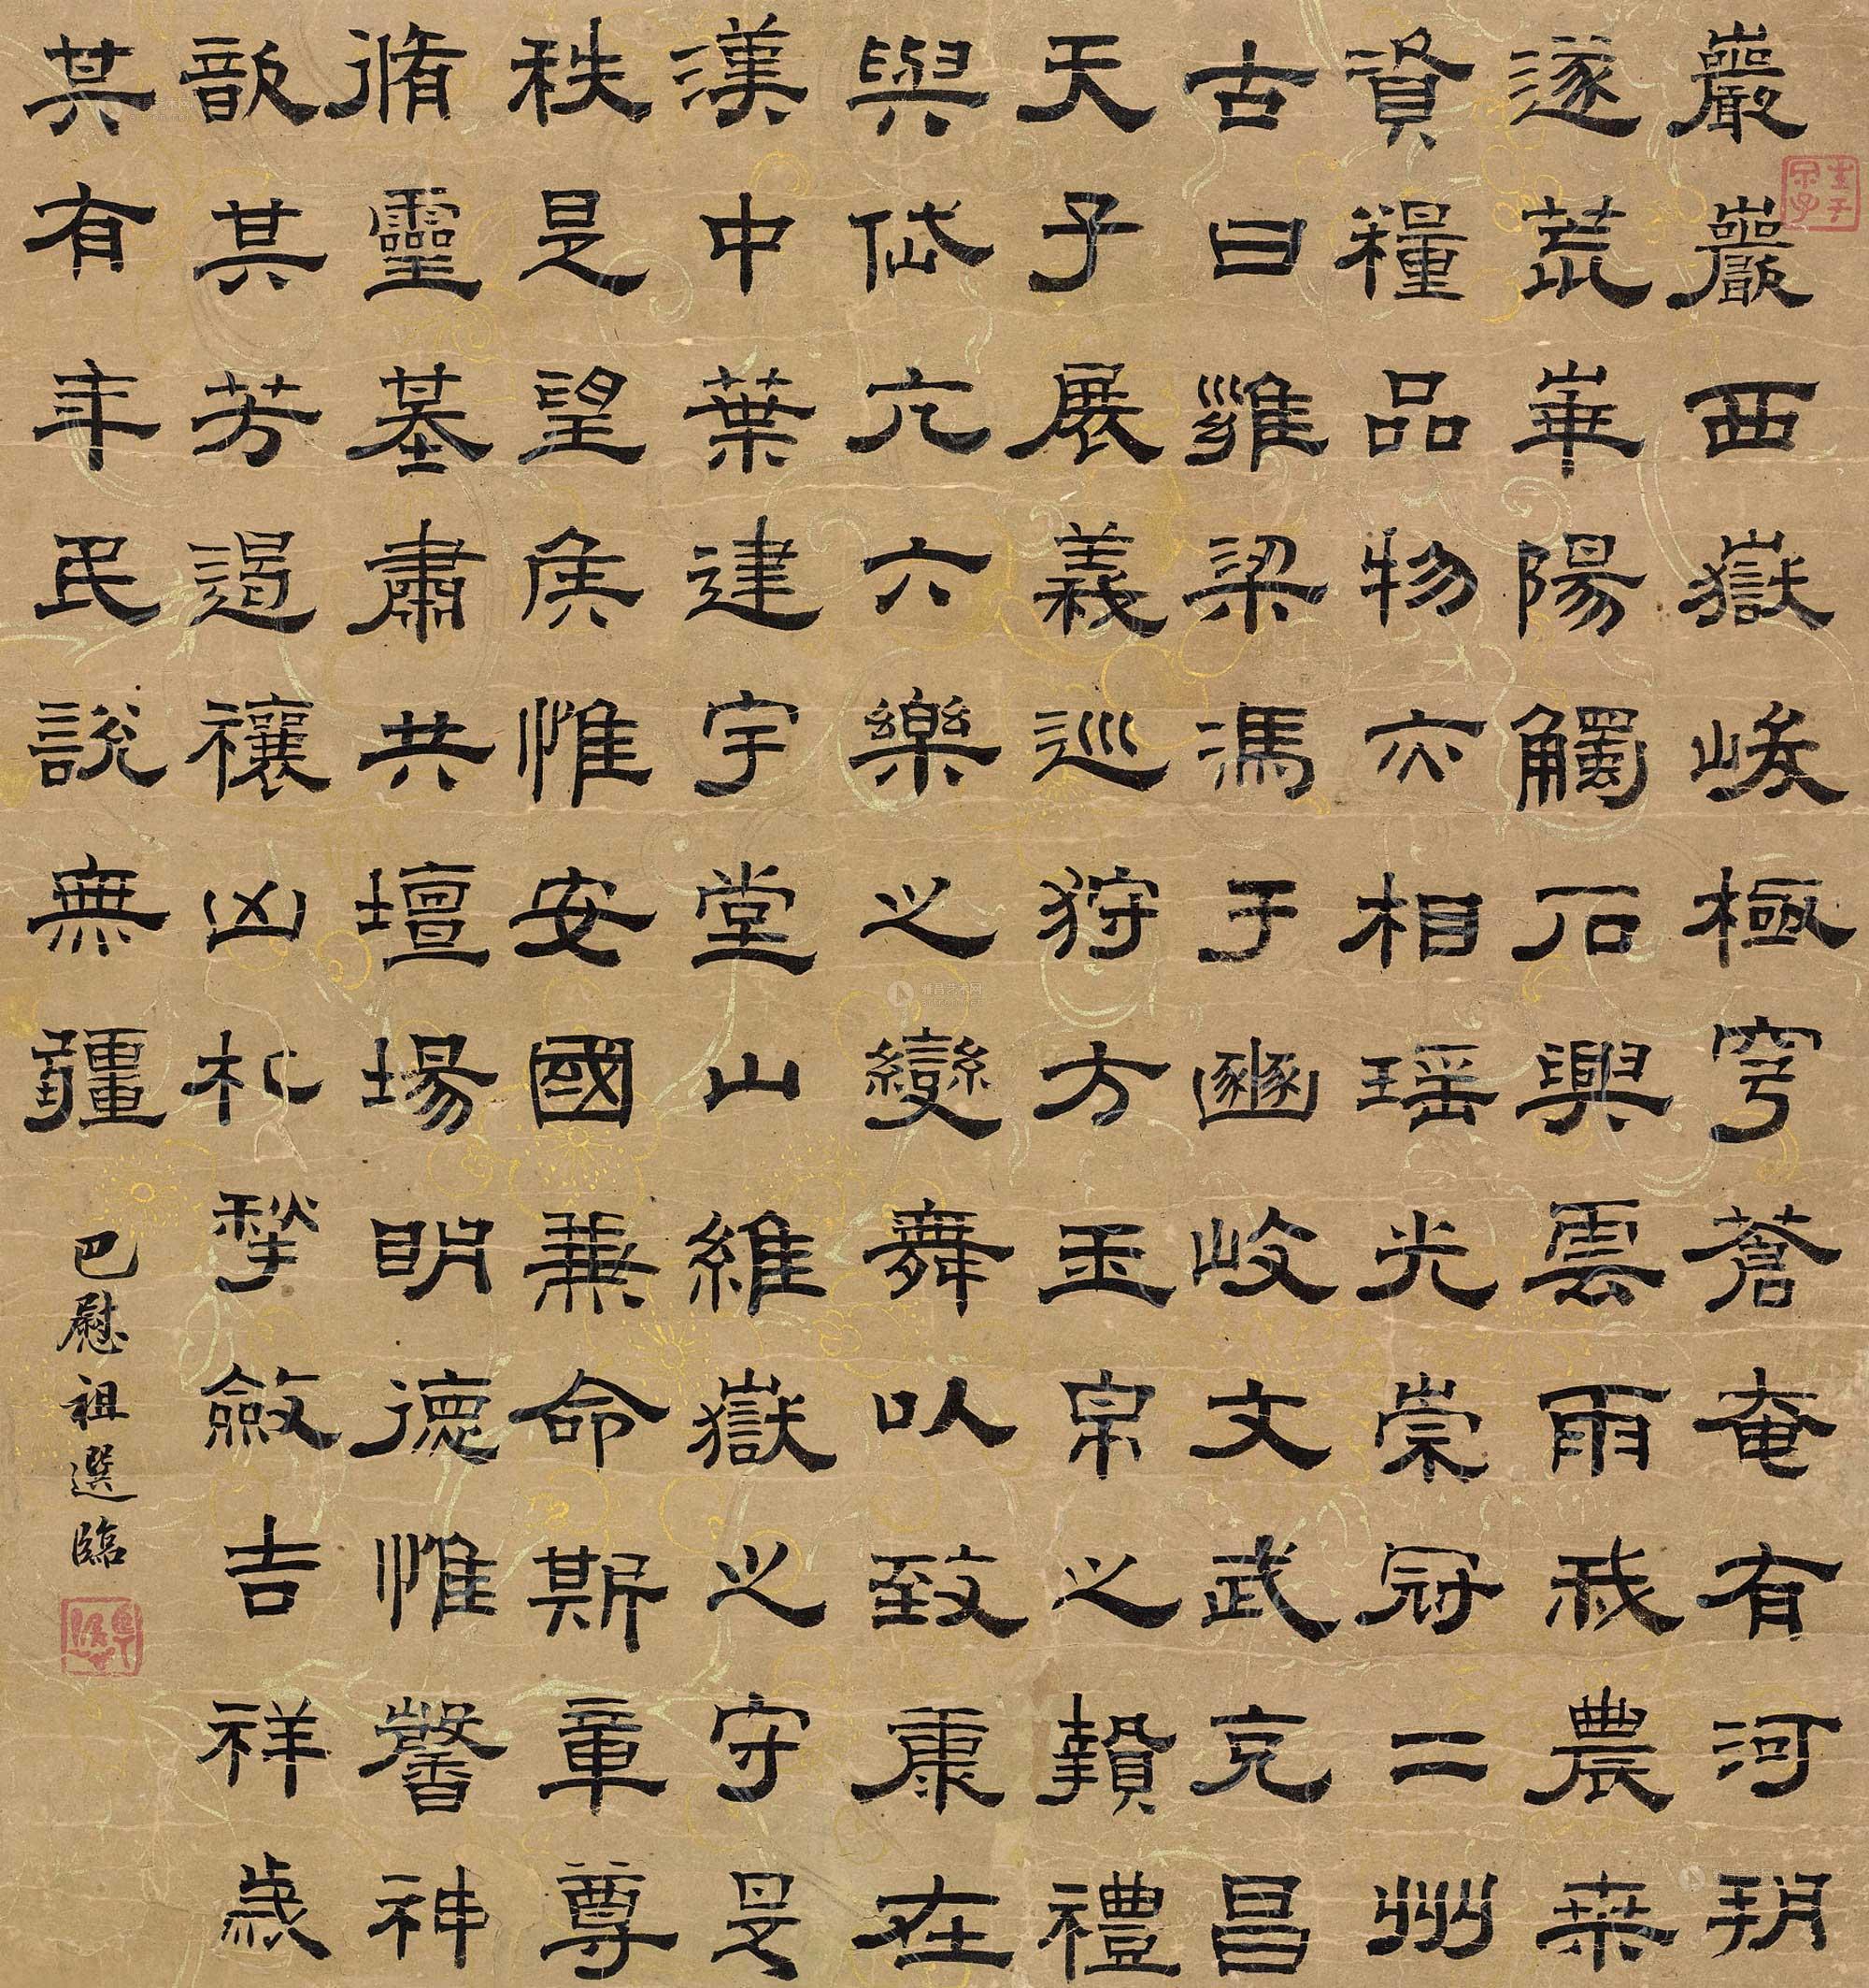 巖巖西嶽峻極穹蒼奄有河朔
遂荒崋陽觸石興雲雨我農桒
資糧品物亦相瑶光崇冠二州
古曰雍梁馮于豳岐文武克昌
天子展義巡狩方玉帛之贄禮
與岱亢六樂之變舞以致康在
漢中葉建宇堂山維嶽之守是
秩是望侯惟安國兼命斯章尊
脩靈基肅共壇場明德惟馨神
歆其芳遏禳凶札揫斂吉祥歲
其有年民說無疆
巴慰祖選臨